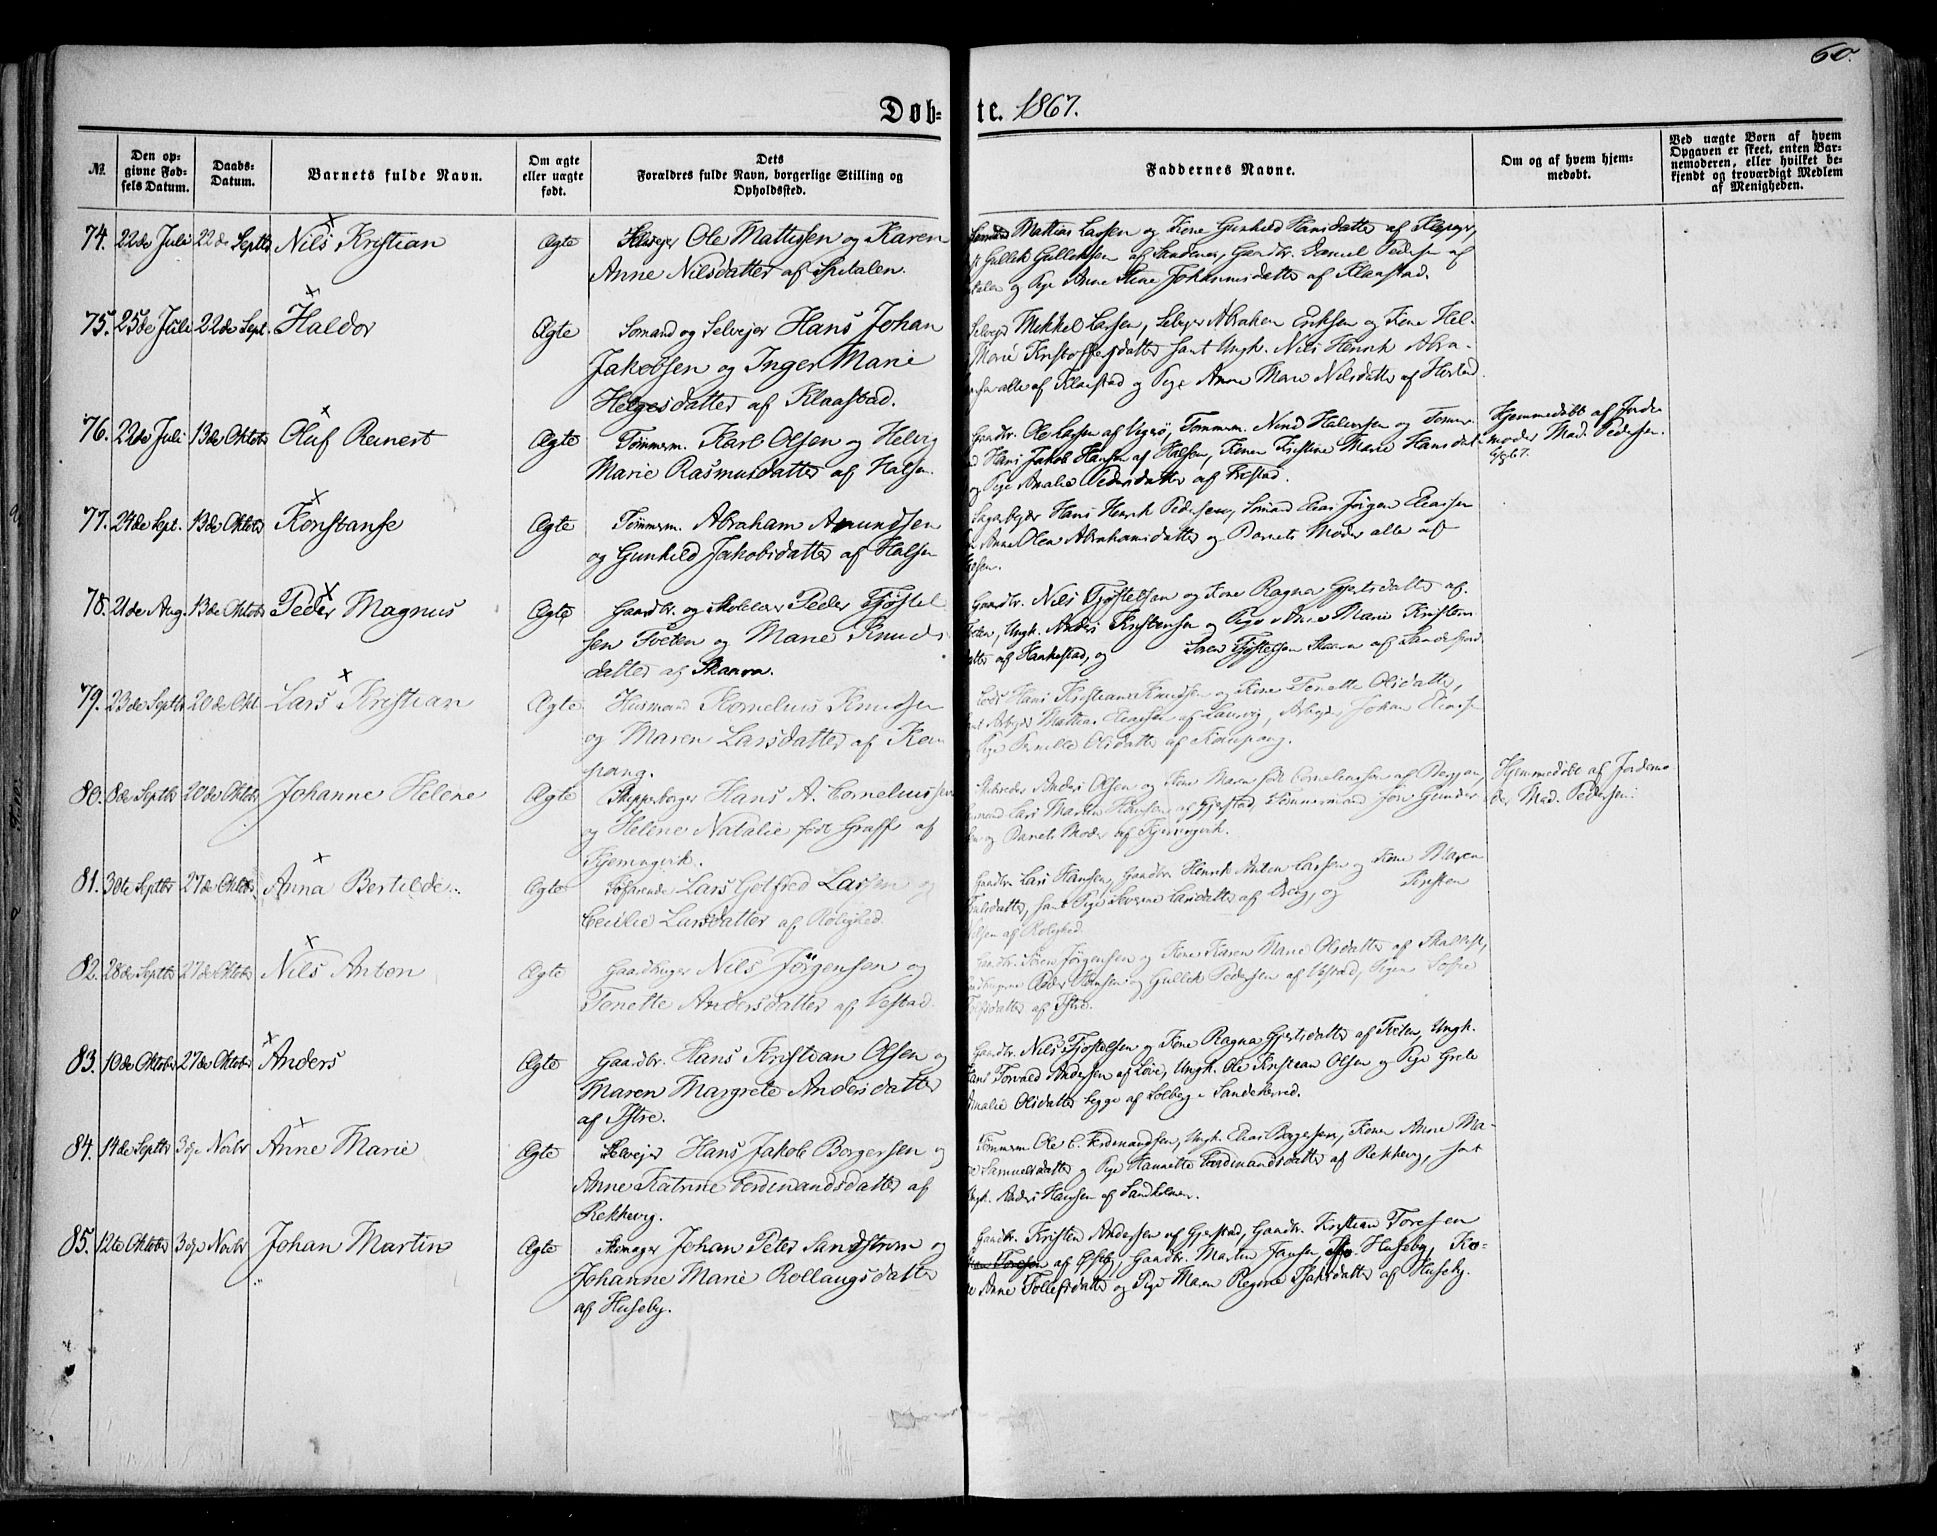 60.
Døb-te. 1867.
№. Den opgivne Fødsels Datum. Daabs-Datum. Barnets fulde Navn. Om ægte eller uægte født. Dets Forældres fulde Navn, borgerlige Stilling og Opholdssted. Faddernes Navne. Om og af hvem hjemmedøbt. Ved uægte Børn af hvem Opgaven er skeet, enten Barnemoderen, eller hvilket bekjendt og troværdigt Medlem af Menigheden.
74. 22de Juli 22de Septbr Nils Kristian Ægte Selvejer Ole Mattisen og Karen
Anne Nilsdatter af Spitalen.
Mathias Larsen og Kone Gunhild Hansdatter af
Gullik Gulliksen af Sandenes, Gaardbr. Samuel Pedersen af
og Pige Anne Stine Johannesdatter af Klaastad.
75. 25de Juli 22de Sept. Haldor Ægte Sømand og Selvejer Hans Johan
Jakobsen og Inger Marie
Helgesdatter af Klaastad.
Selvejer Mikkel Larsen, Selvejer Abraham Eriksen og Kone Hel-
Marie Kristoffersdatter samt Ungk. Nils Henrik Abra-
alle af Klaastad og Pige Anne Marie Nilsdatter af
76. 22de Juli 13de Oktober Oluf Reinert Ægte Tømmerm. Karl Olsen og Helvig
Marie Rasmusdatter af Halsen.
Gaardbr. Ole Larsen af Tømmerm. Halvorsen og Tømmer-
Hans Jakob Hansen af Halsen, Konen Kristine Marie Hansdat-
og Pige Amalie Pedersdatter af
Hjemmedøbt af Jorde-
moder Mad. Pedersen.
77. 24de Sept. 13de Oktober Konstanse Ægte Tømmerm. Abraham Amundsen
og Gunhild Jakobsdatter af Halsen
Hans Henrik Pedersen, Sømand Elias Jørgen Eliassen
Anne Olea Abrahamsdatter og Barnets Moder alle af
78. 21de Aug. 13de Oktober Peder Magnus Ægte Gaardbr. og Peder Tjøstel
sen Tveten og Marie Knuds
datter af Skaara.
Gaardbr. Nils Tjøstelsen og Kone Ragna Gjertsdatter af
Ungk. Anders Kristensen og Pige Anne Marie Kristens
datter af Haakestad, og Søren Tjøstelsen Skaara af Sandefjord
79. 23de Septbr 20de Okt. Lars Kristian Ægte Husmand Kornelius Knudsen
og Maren Larsdatter af Kau
pang.
Hans Kristian Knudsen og Kone Tonette Olsdatter,
Mathias Eliassen af Laurvig, Johan
Pige Pernille Olsdatter af Kaupang.
80. 8de Septbr 20de Oktober Johanne Helene Ægte Skipperborger Hans A. Corneliussen
og Helene Natalie født Graff af
Kjerringvik.
Anders Olsen og Kone Maren født Corneliussen af Bergan,
Lars Martin Hansen af Gjerstad, Tømmermand Jørn Gunder-
og Barnets Moder af Kjerringvik.
Hjemmedøbt af Jordemo
der Mad. Pedersen.
81. 30te Septbr 27de Oktober Anna Bertilde Ægte Søfarende Lars Gotfred Larsen og
Cecilie Larsdatter af Rolighed
Gaardbr. Lars Hansen, Gaardbr. Henrik Anton Larsen og Kone Maren
samt Pige Severine Larsdatter af Berg, og Kristen
Olsen af Rolighed.
82. 28de Septbr 27de Oktober Nils Anton Ægte Gaardbruger Nils Jørgensen og
Tonette Andersdatter af Vestad
Gaardbr. Søren Jørgensen og Kone Karen Marie Olsdatter af
Peder Hansen og Gullik Pedersen af Vestad, Pigen Sofie
af Istre.
83. 10de Oktober 27de Oktober Anders Ægte Gaardbr. Hans Kristian Olsen og
Maren Margrete Andersdatter
af Istre.
Gaardbr. Nils Tjøstelsen og Kone Ragna Gjertsdatter af Tveten, Ungk.
Hans Torvald Andersen af Løve, Ungk. Ole Kristian Olsen og Pige Grete
Amalie Olsdatter begge af Solberg i Sandeherred.
84. 14de Septbr 3dje Novbr Anne Marie Ægte Selvejer Hans Jakob Borgersen og
Anne Katrine Ferdinandsdatter af
Rekkevig.
Tømmerm. Ole C. Ferdinandsen, Ungk. Elias Borgersen, Konen Anne Ma-
Samuelsdatter og Pige Hannette Ferdinandsdatter af Rekkevig, samt
Ungk. Anders Hansen af Sandholmen.
85. 12te Oktober 3dje Novbr Johan Martin Ægte Skomager Johan Peter Sandstrøm og
Johanne Marie Rollaugsdatter
af Huseby.
Gaardbr. Kristen Andersen af Gjerstad, Gaardbr. Kristian Toresen
af Østby, Gaardbr. Martin Jansen, Huseby, Ko-
ne Anne Tollefsdatter og Pige Maren Regine Isaksdatter af Huseby.